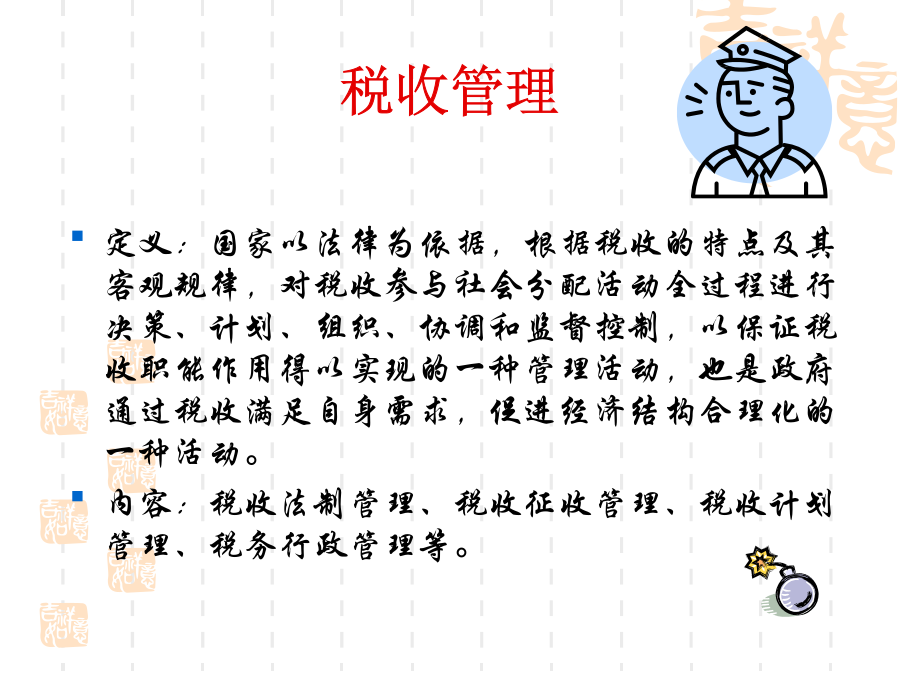 税收管理
定义：国家以法律为依据，根据税收的特点及其
客观规律，对税收参与社会分配活动全过程进行
决策、计划、组织、协调和监督控制，以保证税
收职能作用得以实现的一种管理活动，也是政府
通过税收满足自身需求，促进经济结构合理化的
一种活动。
内容：税收法制管理、税收征收管理、税收计划
管理、税务行政管理等。